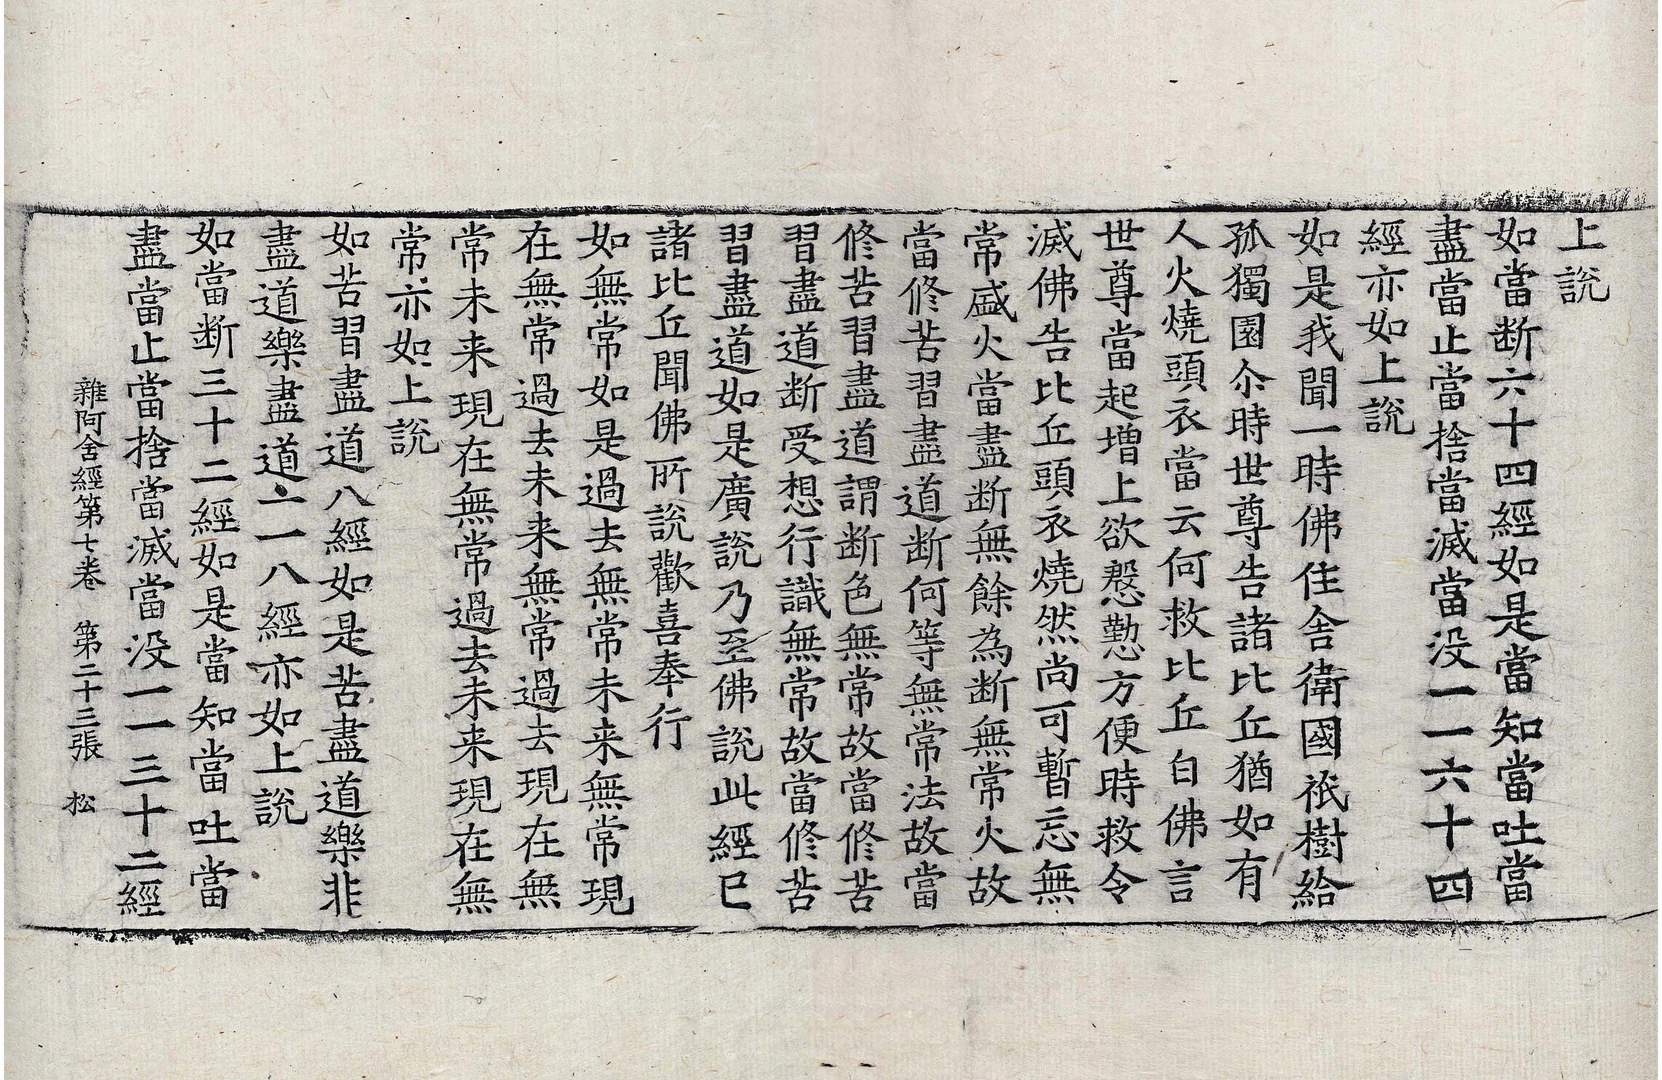 上說
如當断六十四經如是當知當吐當
盡當止當捨當滅當没一一六十四
經亦如上說
如是我聞一時佛住舍衛國祇樹給
孤獨園尒時世尊告諸比丘猶如有
人火燒頭衣當云何救比丘白佛言
世尊當起增上欲慇懃方便時救令
滅佛告比丘頭衣燒然尚可暫忘無
常盛火當盡断無餘為断無常火故
當修苦習盡道断何等無常法故當
修苦習盡道謂断色無常故當修苦
習盡道断受想行識無常故當修苦
習盡道如是廣說乃至佛說此經已
諸比丘聞佛所說歡喜奉行
如無常如是過去無常未来無常現
在無常過去未来無常過去現在無
常未来現在無常過去未来現在無
常亦如上說
如苦習盡道八經如是苦盡道樂非
盡道樂盡道一一八經亦如上說
如當断三十二經如是當知當吐當
盡當止當捨當滅當没一一三十二經
雜阿含經第七卷 第二十三張 松